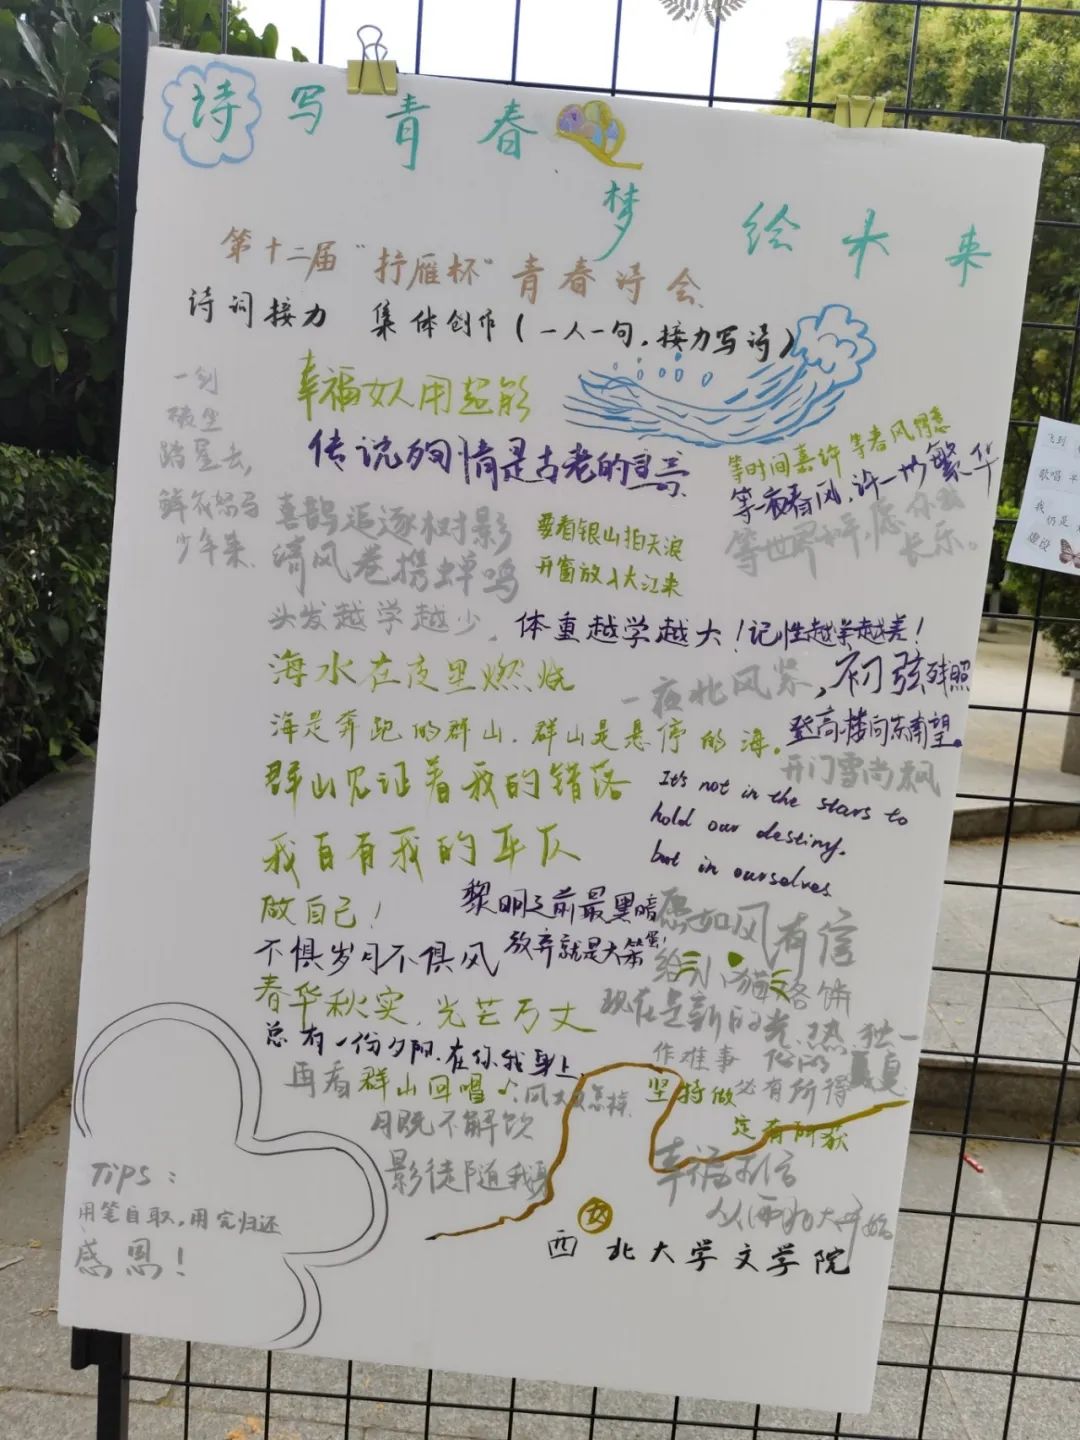 诗写青春
梦绘未来
第十二届"抒雁杯"青春诗会
诗词接力 集体创作(一人一句,接力写诗)
一剑
破尘
踏星去,
鲜衣怒马
少年来
幸福女人用超能
传说殉情是古老的
等时间嘉许 等春风得意
等一夜春风,许一世繁华
等世界和平,愿你我
长乐。
喜鹊追逐树影
清风卷携蝉鸣
要看银山拍天浪
开窗放入大江来
头发越学越少,
体重越学越大!记性越学越差!
海水在夜里燃烧
一夜北风紧,初弦残照
海是奔跑的群山,群山是悬停的海。
登高楼向东南望。
开门雪尚飘
群山见证着我的错落
我自有我的平仄
It's not in the stars to
hold our destiny.
but in ourselves
做自己!
黎明之前最黑暗
放弃就是大笨蛋!
不惧岁月不惧风
愿如风有信
给小猫烙饼
春华秋实,光芒万丈
现在是新的光、热、独一
总有一份夕阳,在你我身上,
作难事
必有所得
坚持做
定有所获
再看群山回唱
月既不解饮
影徒随我身
幸福
从西北大学开始
西北大学文学院
Tips:
用笔自取,用完归还
感恩!
飞到
歌唱
我
仍是
建设